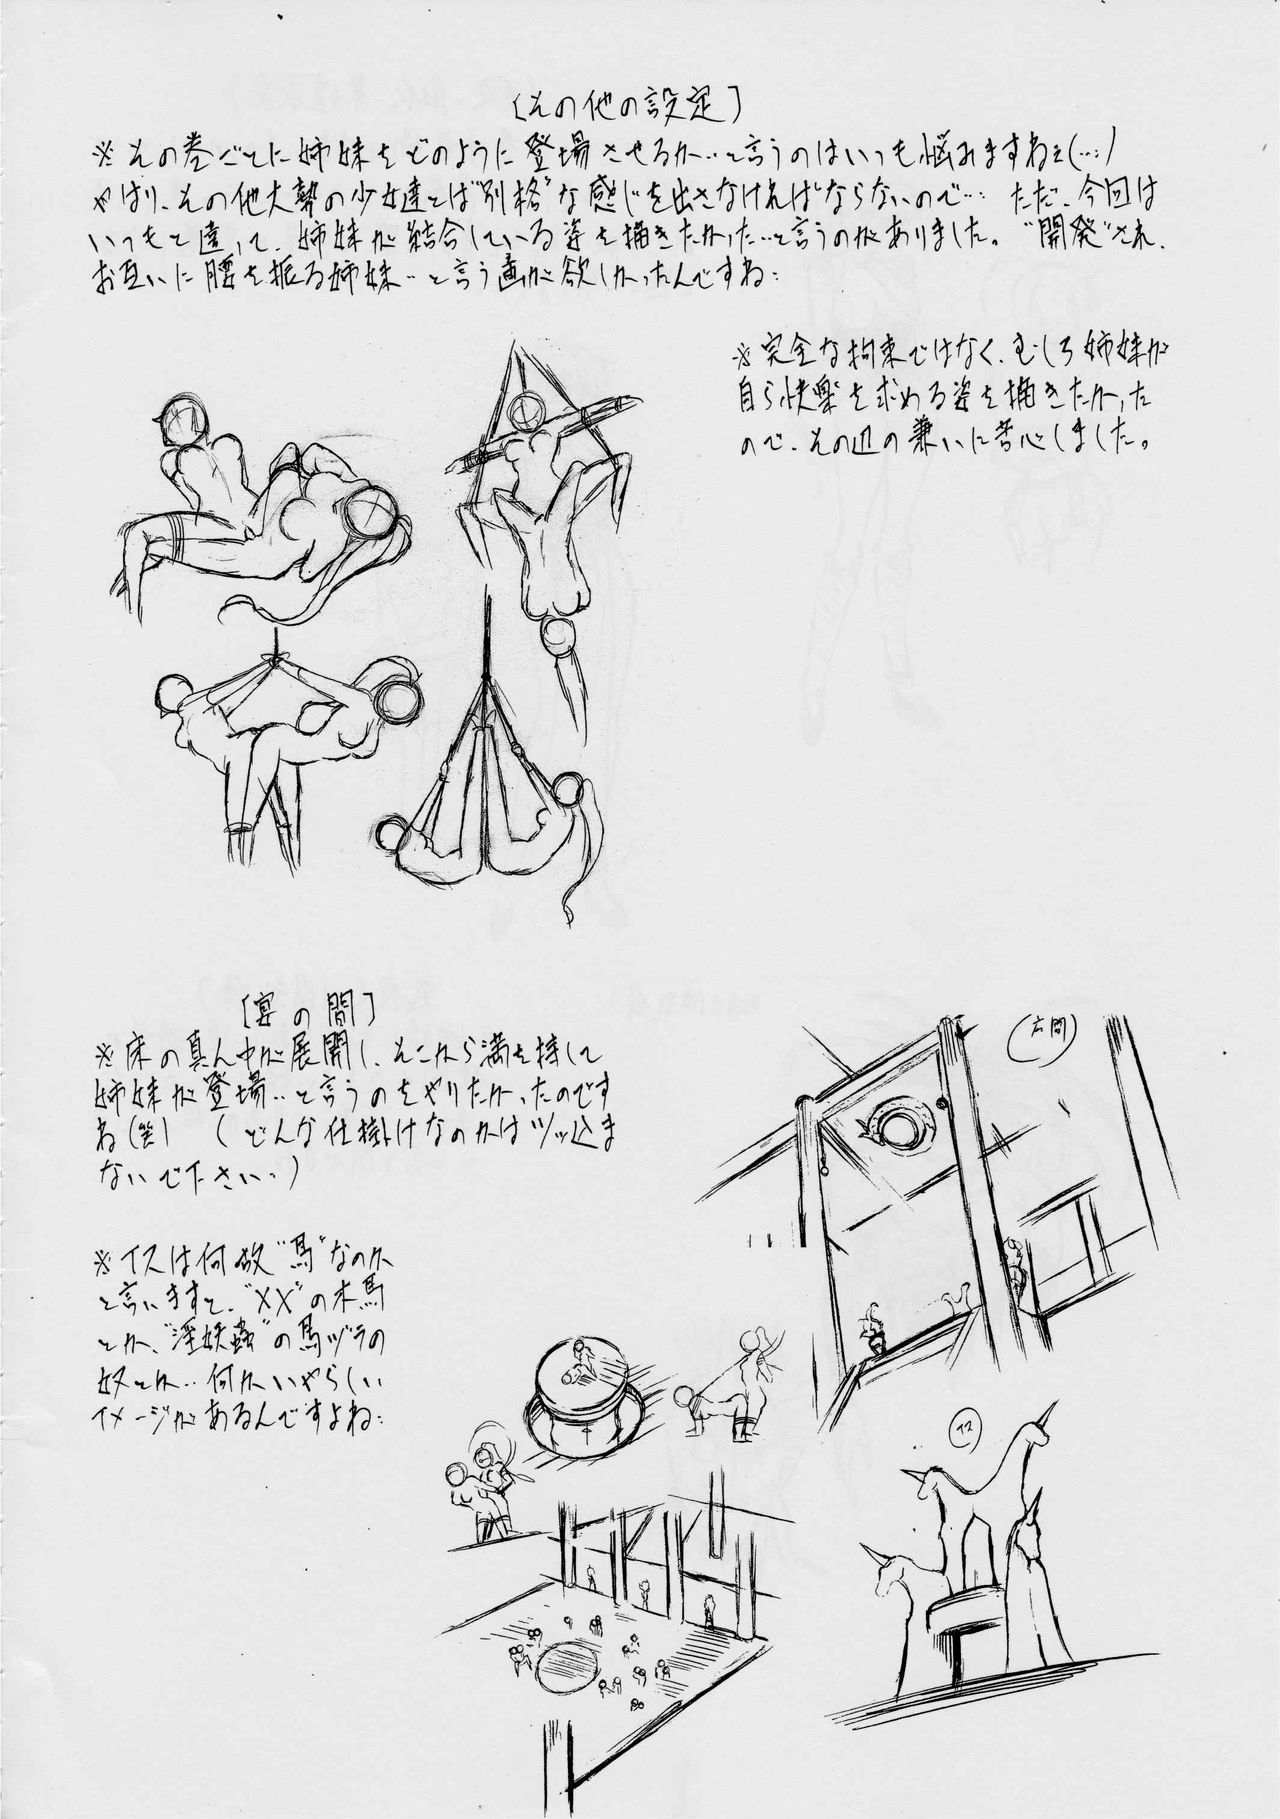 [その他の設定]
※その巻ごとに姉妹をどのように登場させるか‥と言うのはいつも悩みますねぇ(…)
やはり、その他大勢の少女達とは"別格"な感じを出さなければならないので… ただ、今回は
いつもと違って、姉妹が結合している姿を描きたかった‥と言うのがありました。"開発"され、
お互いに腰を振る姉妹‥と言う画が欲しかったんですね‥
※完全な拘束ではなく、むしろ姉妹が
自ら快楽を求める姿を描きたかった
ので、その辺の兼いに苦心しました。
[宴の間]
※床の真ん中が展開し、そこから満を持して
姉妹が登場‥と言うのをやりたかったのです
ね(笑) (どんな仕掛けなのかはツッ込ま
ないで下さい‥)
※イスは何故"馬"なのか
と言いますと、"××"の木馬
とか、"淫妖蟲"の馬ヅラの
奴とか‥何かいやらしい
イメージがあるんですよね‥
イス